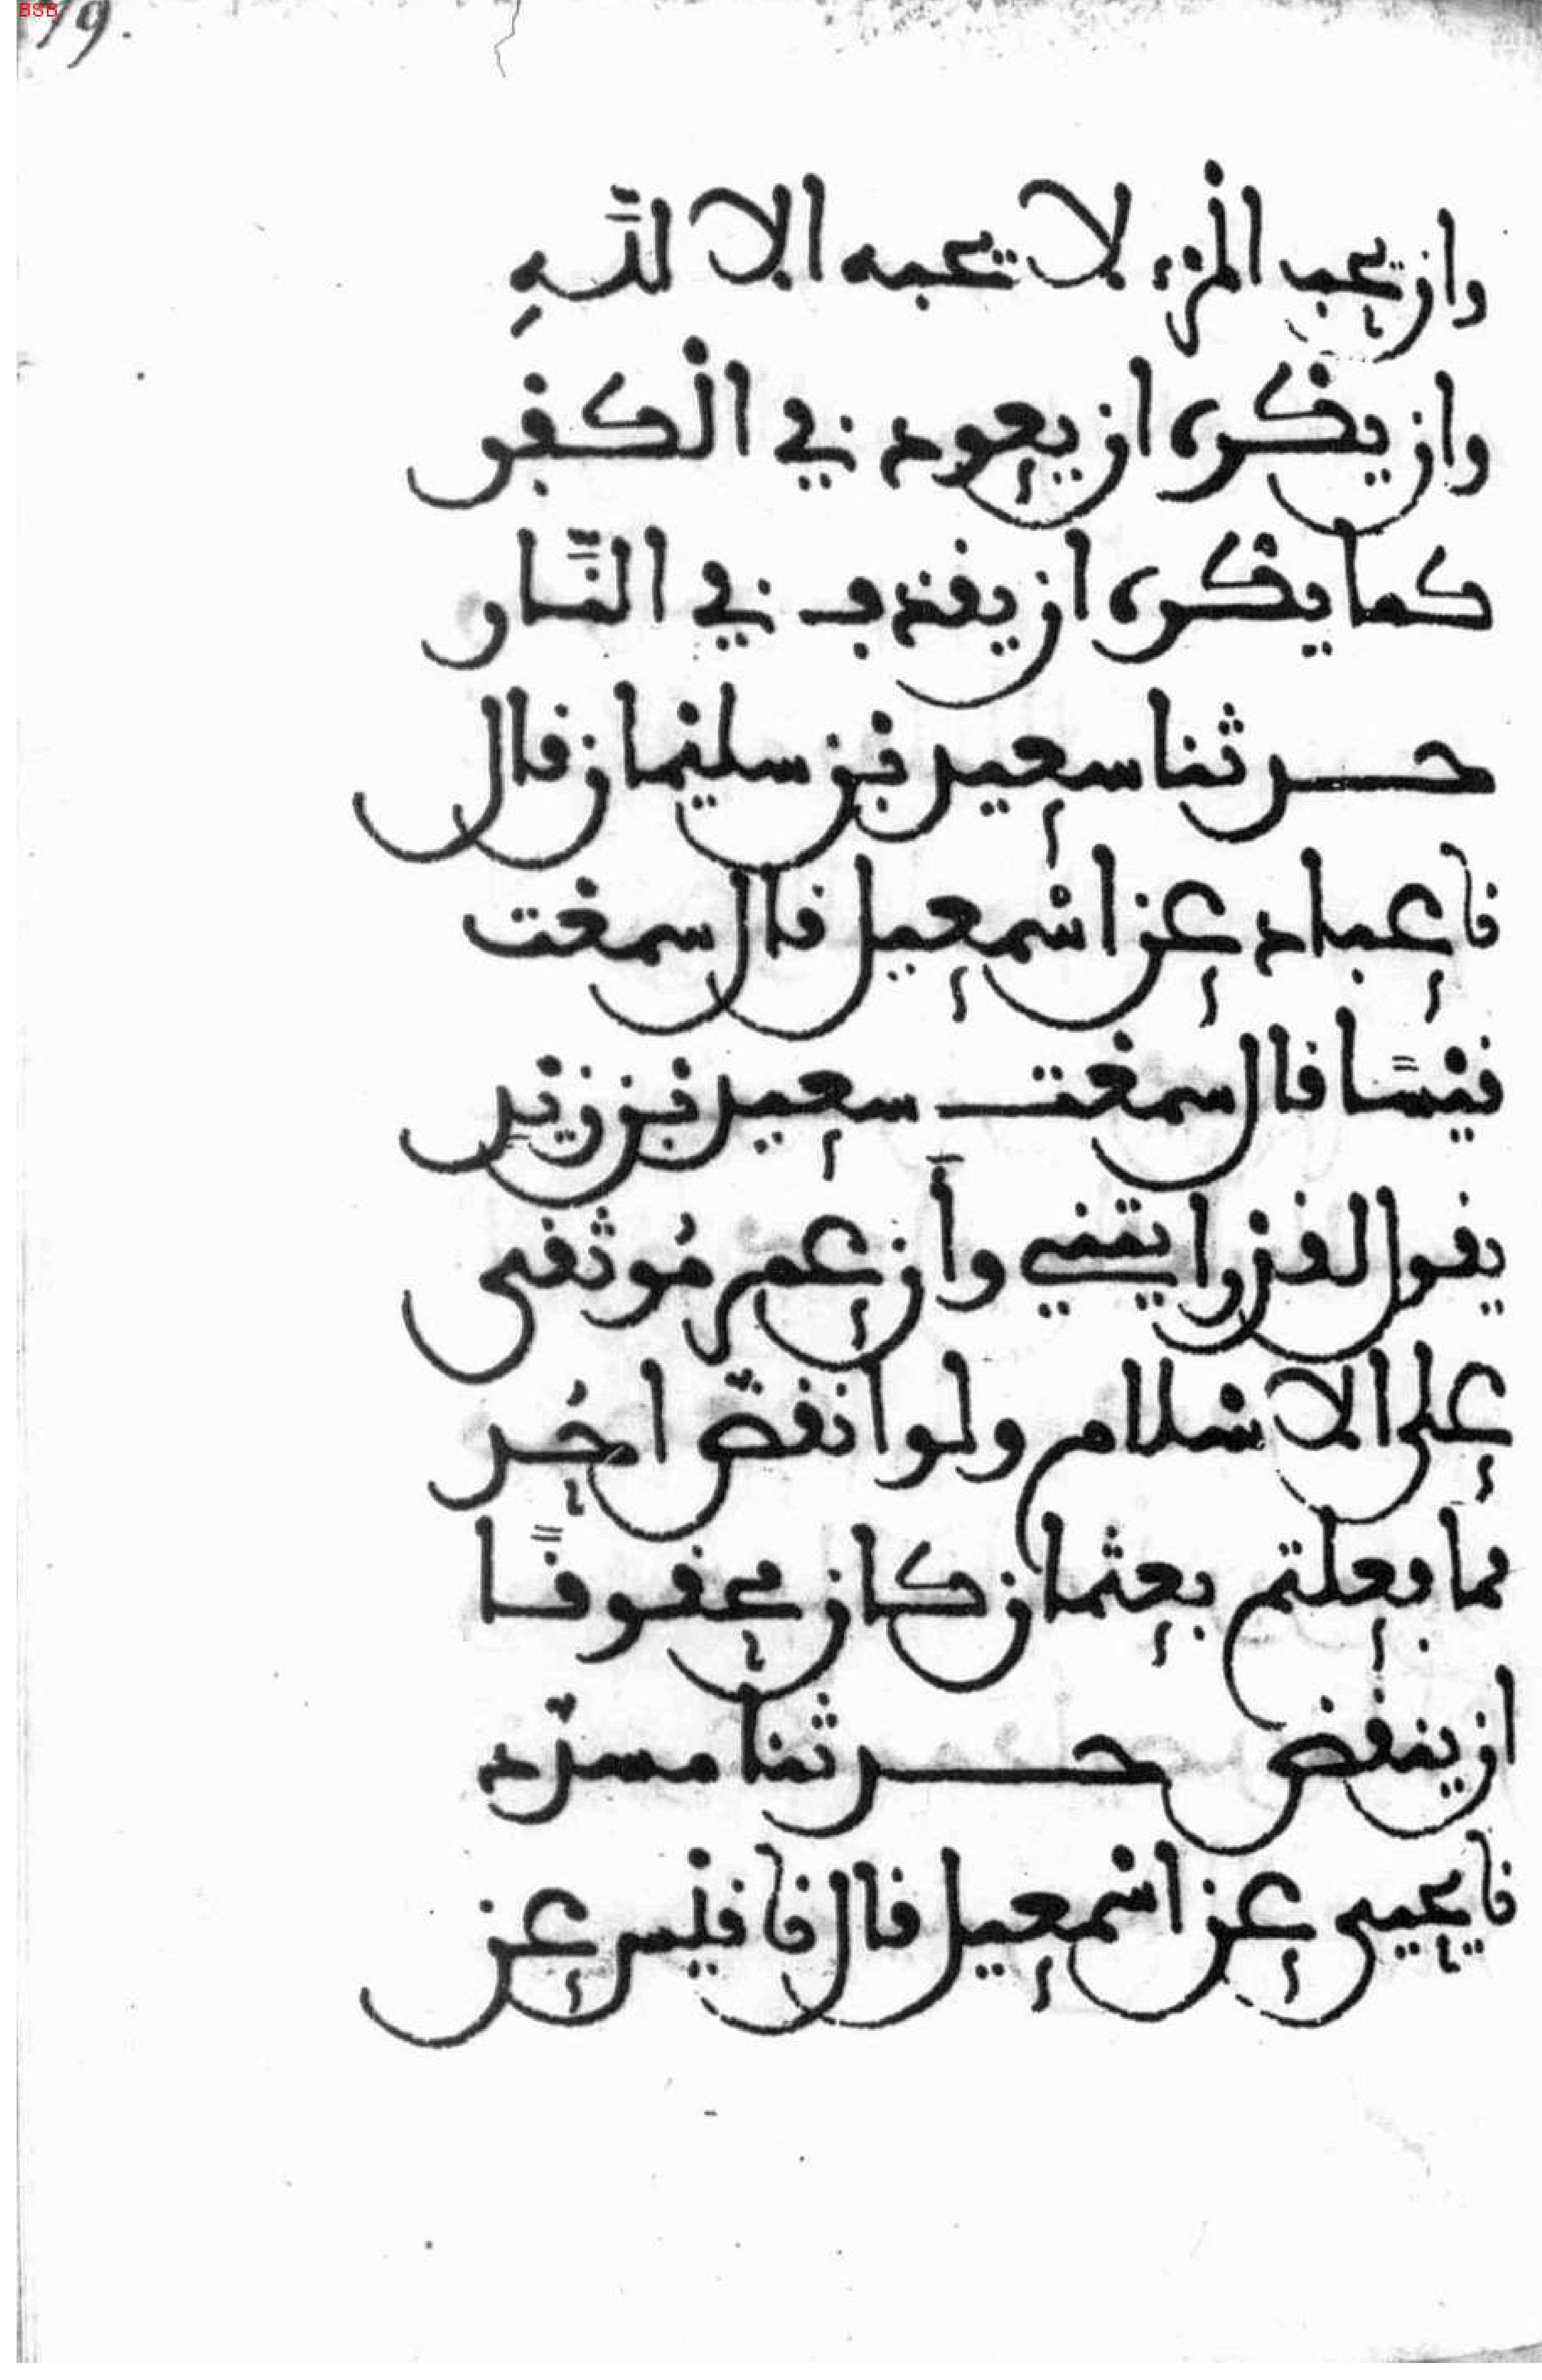 19.
وان يحب المرْء لا يحبه الا للَّهِ
وان يكْره ان يعود في الْكفْر
كما يكْره ان يقذف في النَّار
حدثنا سعيد بْن سليْمان قال
نا عباد عن اسْمعيل قال سمعْت
قيْسًا قال سمعْت سعيد بْن زيْد
يقول لقد رايتني وأَن عمر مُوثقى
على الاسْلام ولو انقضّ احُد
مما فعلتم بعثمان كان محقوقًا
ان ينقضّ حدثنا مسدّد
نا يحيى عن اسْمعيل قال نا قيْس عن